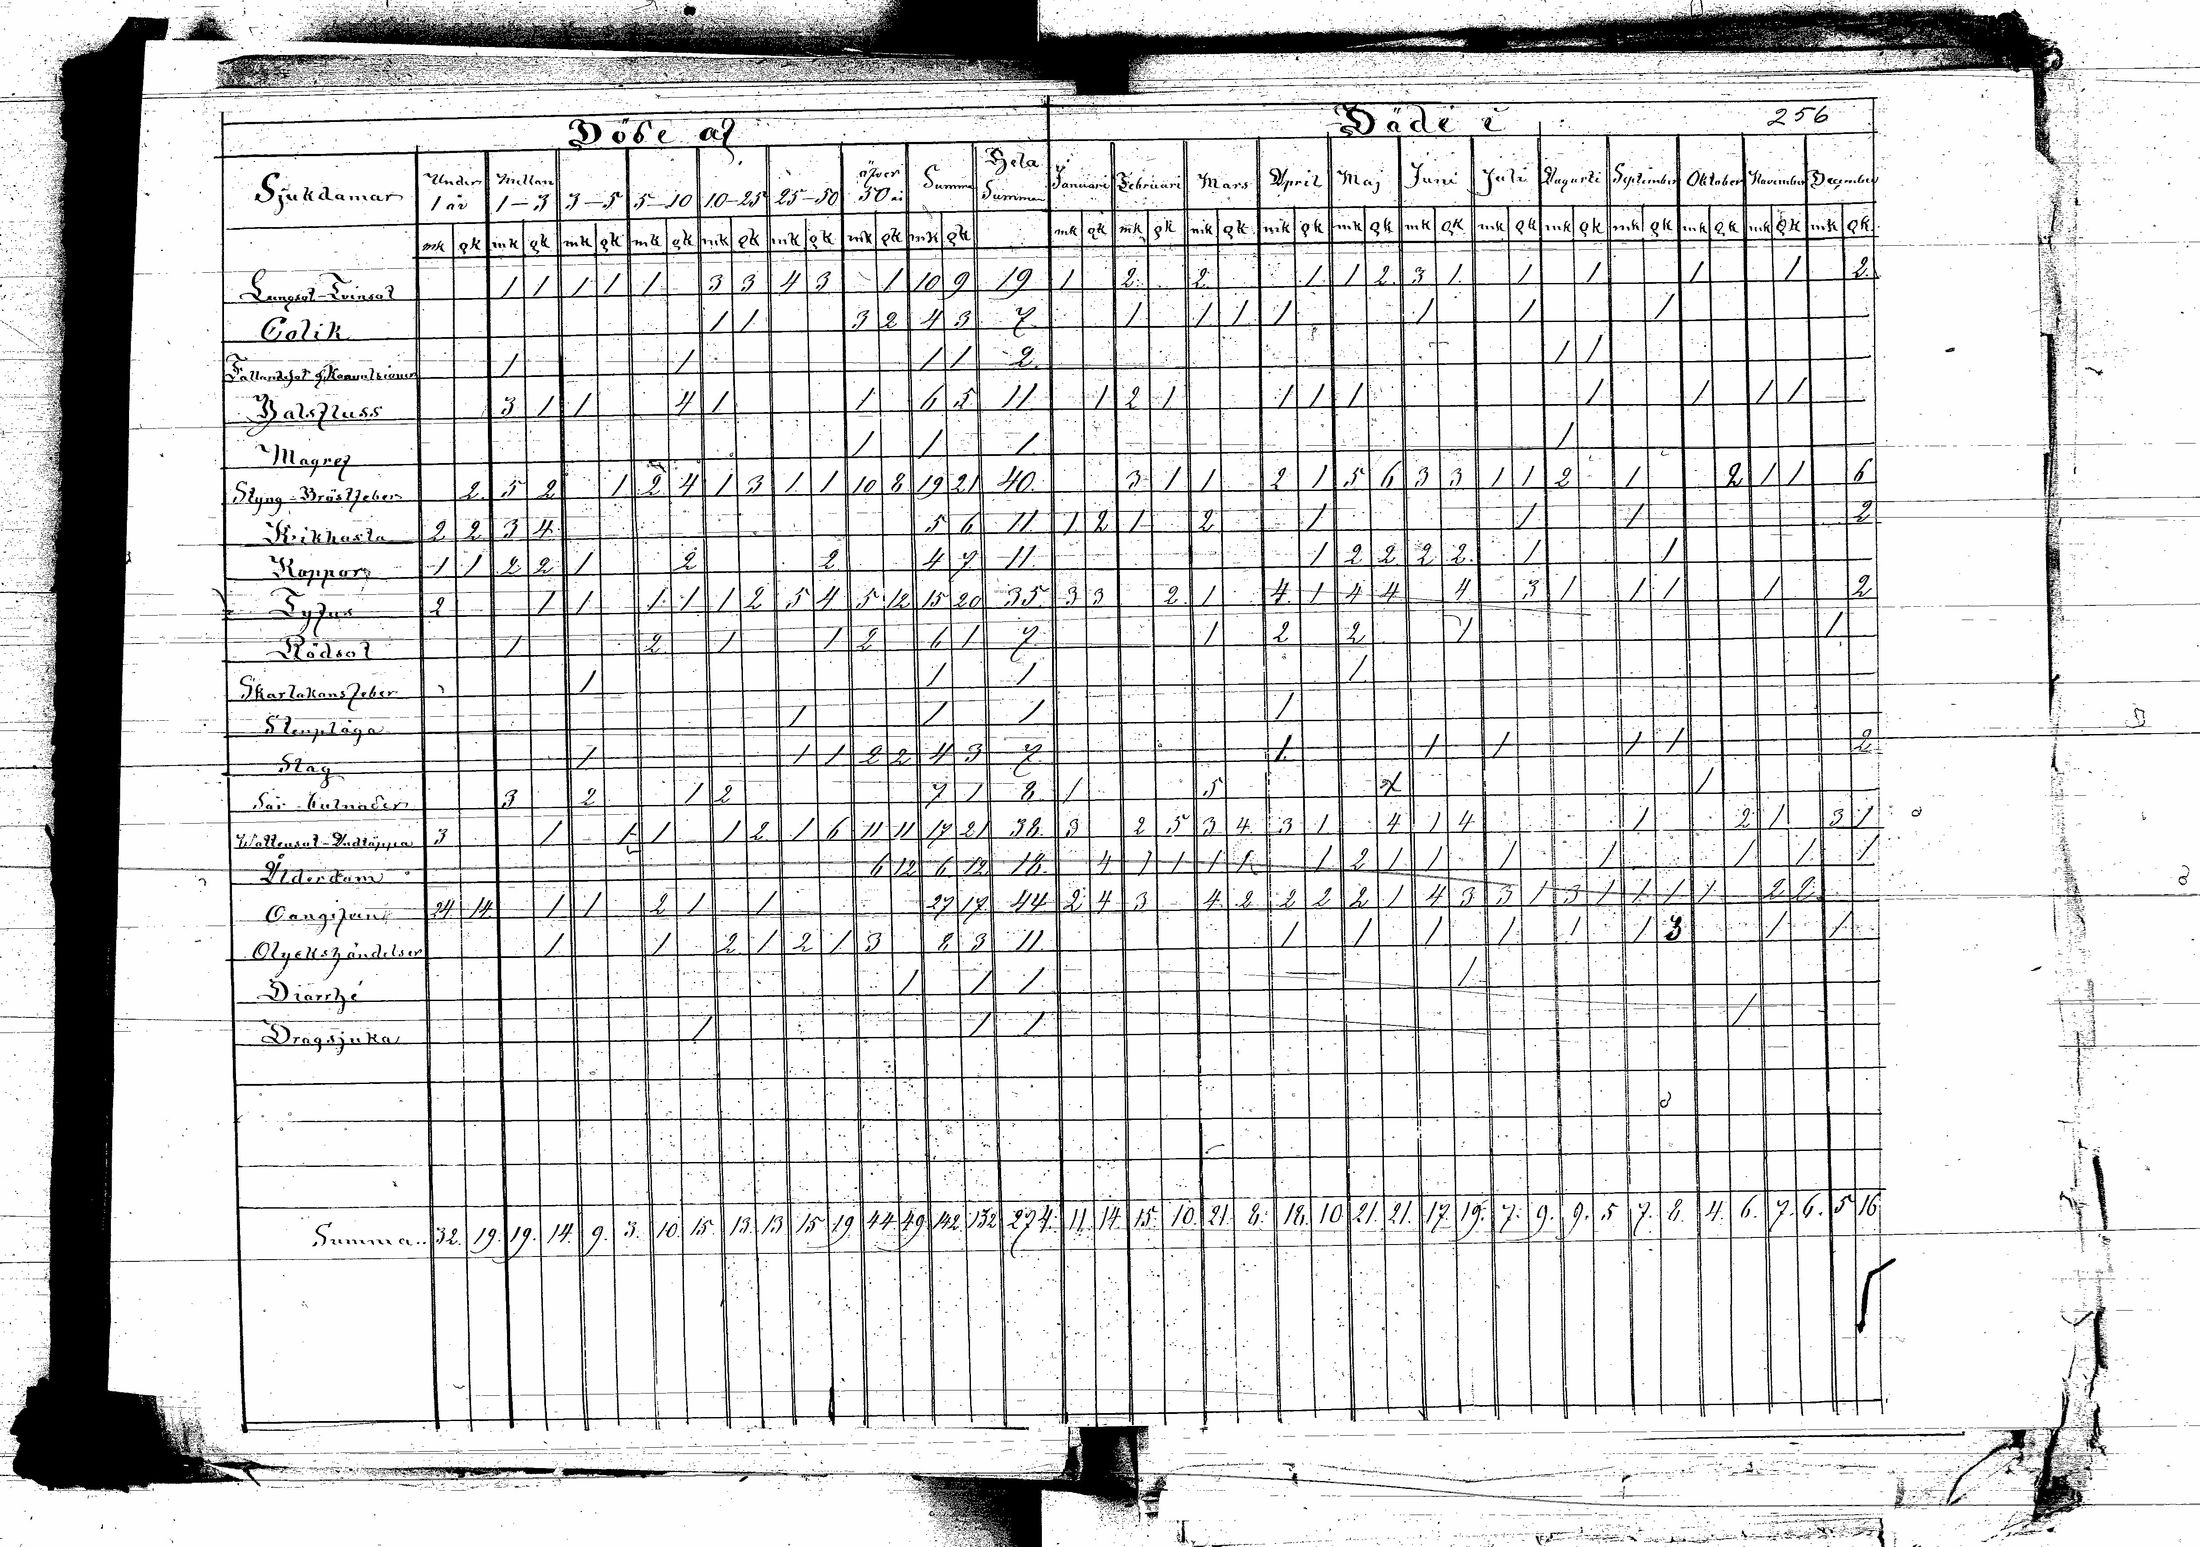 256
Döde af Döde i
Sjukdomar Under 1 år Mellan 1–3 3–5 5–10 10–25 25–50 öfver 50 år Summa Hela Summan Januari Februari Mars April Maj Juni Juli Augusti September Oktober November December
mk qk mk qk mk qk mk qk mk qk mk qk mk qk mk qk mk qk mk qk mk qk mk qk mk qk mk qk mk qk mk qk mk qk mk qk mk qk mk qk
Lungsot-Tvinsot 1 1 1 1 1 3 3 4 3 1 10 9 19 1 2 2 1 1 2 3 1 1 1 1 1 2
Colik 1 1 3 2 4 3 7 1 1 1 1 1 1 1
Fallandesot 1 1 1 1 2 1 1
Halsfluss 3 1 1 4 1 1 6 5 11 1 2 1 1 1 1 1 1 1 1
Magref 1 1 1 1
Styng-Bröstfeber 2 5 2 1 2 4 1 3 1 1 10 8 19 21 40 3 1 1 2 1 5 6 3 3 1 1 2 1 2 1 1 6
Kikhosta 2 2 3 4 5 6 11 1 2 1 2 1 1 1 2
Koppor 1 1 2 2 1 2 2 4 7 11 1 2 2 2 2 1 1
Tyfus 2 1 1 1 1 1 2 5 4 5 12 15 20 35 3 3 2 1 4 1 4 4 4 3 1 1 1 1 2
Rödsot 1 2 1 1 2 6 1 7 1 2 2 1 1
Skarlakansfeber 1 1 1 1
Stenplåga 1 1 1 1
Slag 1 1 1 2 2 4 3 7 1 1 1 1 1 2
Sår 3 2 1 2 7 1 8 1 5 1
Wattusot-Andtäppa 3 1 1 1 1 2 1 6 11 11 17 21 38 3 2 5 3 4 3 1 4 1 4 1 2 1 3 1
Ålderdom 6 12 6 12 18 4 1 1 1 1 1 2 1 1 1 1 1 1 1
Oangifven 24 14 1 1 2 1 1 27 17 44 2 4 3 4 2 2 2 2 1 4 3 3 1 3 1 1 1 1 2 2
Olyckshändelser 1 1 2 1 2 1 3 8 3 11 1 1 1 1 1 1 3 1 1
Diarrhé 1 1 1 1
Dragsjuka 1 1 1 1
Summa.. 32. 19. 19. 14. 9. 3. 10. 15. 13. 13. 15. 19. 44. 49. 142. 132 274. 11. 14. 15. 10. 21. 8. 18. 10 21. 21. 17. 19. 7. 9. 9. 5 7. 8. 4. 6. 7. 6. 5 16